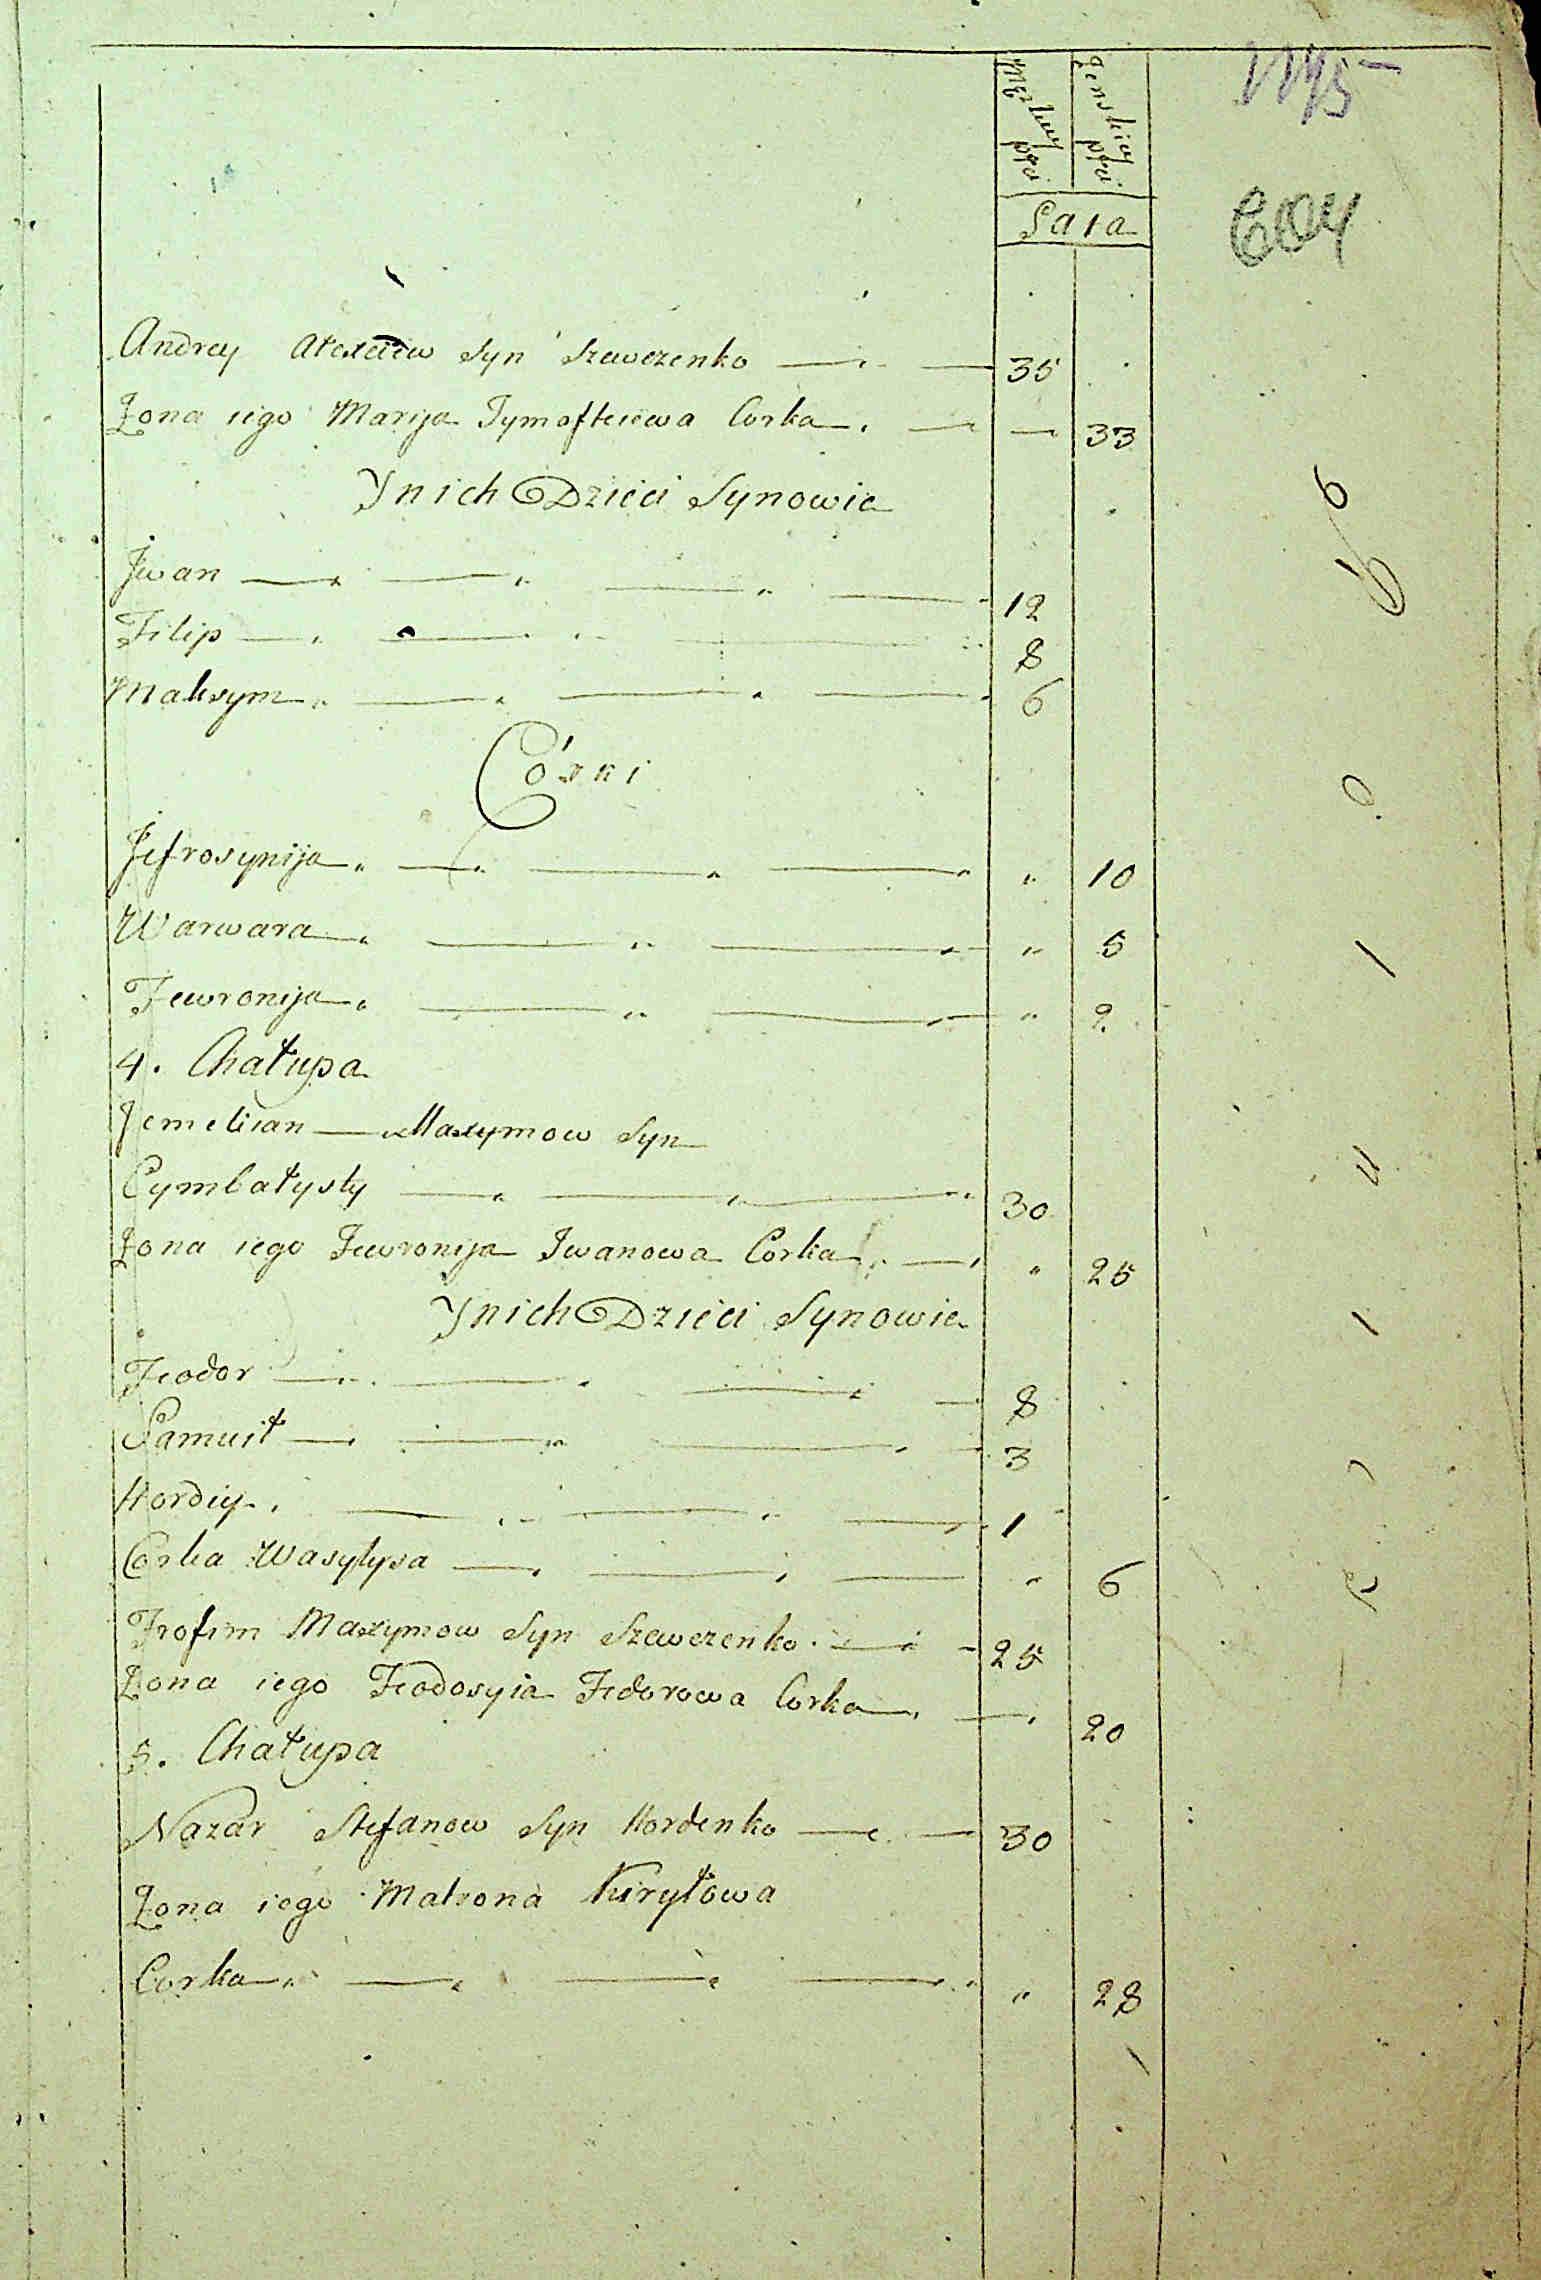 Męzkiey płci
Zenskiey płci
Lata
604
Andrey Alexeiew Syn Szewczenko 35
Zona iego Marija Tymofteiewa Corka 33
Ynich Dzieci Synowie
Jwan 12
Filip 8
Maksym 6
Córki
Jefrosynija 10
Warwara 5
Fewronija 2
4. Chałupa
Jemelian Maxymow Syn
Cymbałysty 30
Zona iego Fewronija Iwanowa Corka 25
Ynich Dzieci Synowie
Feodor 8
Samuił 3
Hordiy 1
Corka Wasylysa 6
Trofim Maxymow Syn Szewczenko 25
Zona iego Feodosyia Fedorowa Corka 20
5. Chałupa
Nazar Stefanow Syn Hordenko 30
Zona iego Matrona Kiryłowa
Corka 28